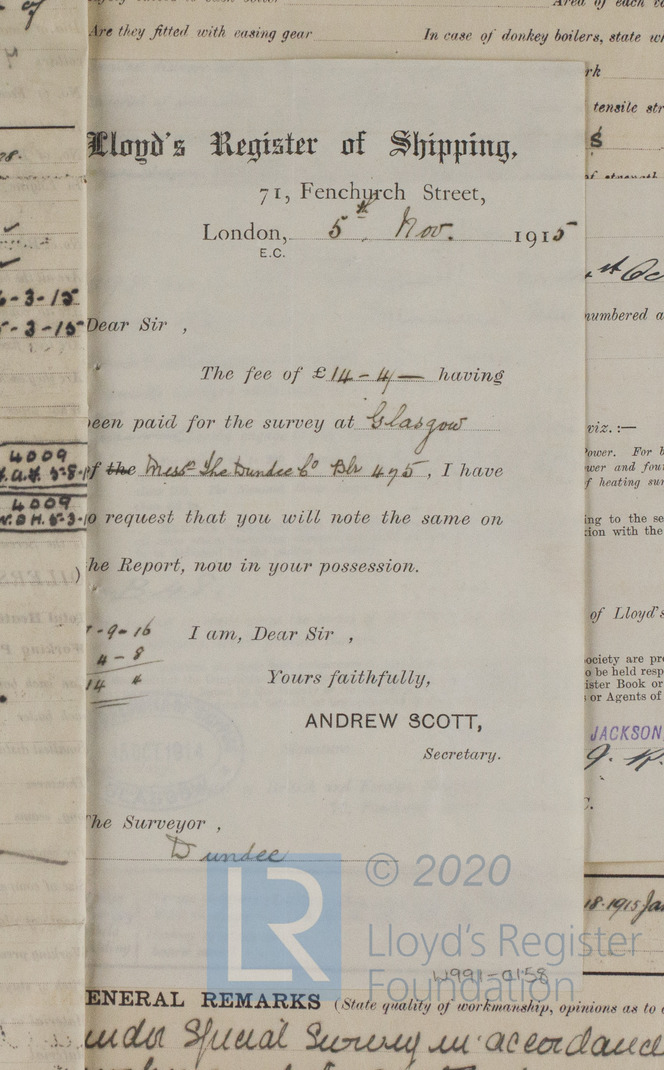 Are they fitted with easing gear
In case of donkey boilers, state
tensile
Lloyd's Register of Shipping,
71, Fenchurch Street,
London, 5th Nov. 1915
E.C.
Dear Sir ,
The fee of £14-4- having
een paid for the survey at Glasgow
f the Messrs The Dundee Co Blr 475, I have
o request that you will note the same on
he Report, now in your possession.
-9-16
4-8
14 4
I am, Dear Sir ,
Yours faithfully,
ANDREW SCOTT,
Secretary.
he Surveyor ,
Dundee
6-3-15
5-3-15
4009
4009
numbered a
viz. :—
Power. For b
of heating sur
ing to the se
tion with the
of Lloyd's
ociety are pre
o be held resp
ister Book or
or Agents of
JACKSON
18.1915 Jan
LR
© 2020
Lloyd's Register
Foundation
W991-0158
ENERAL REMARKS (State quality of workmanship, opinions as to
under Special Survey in accordance